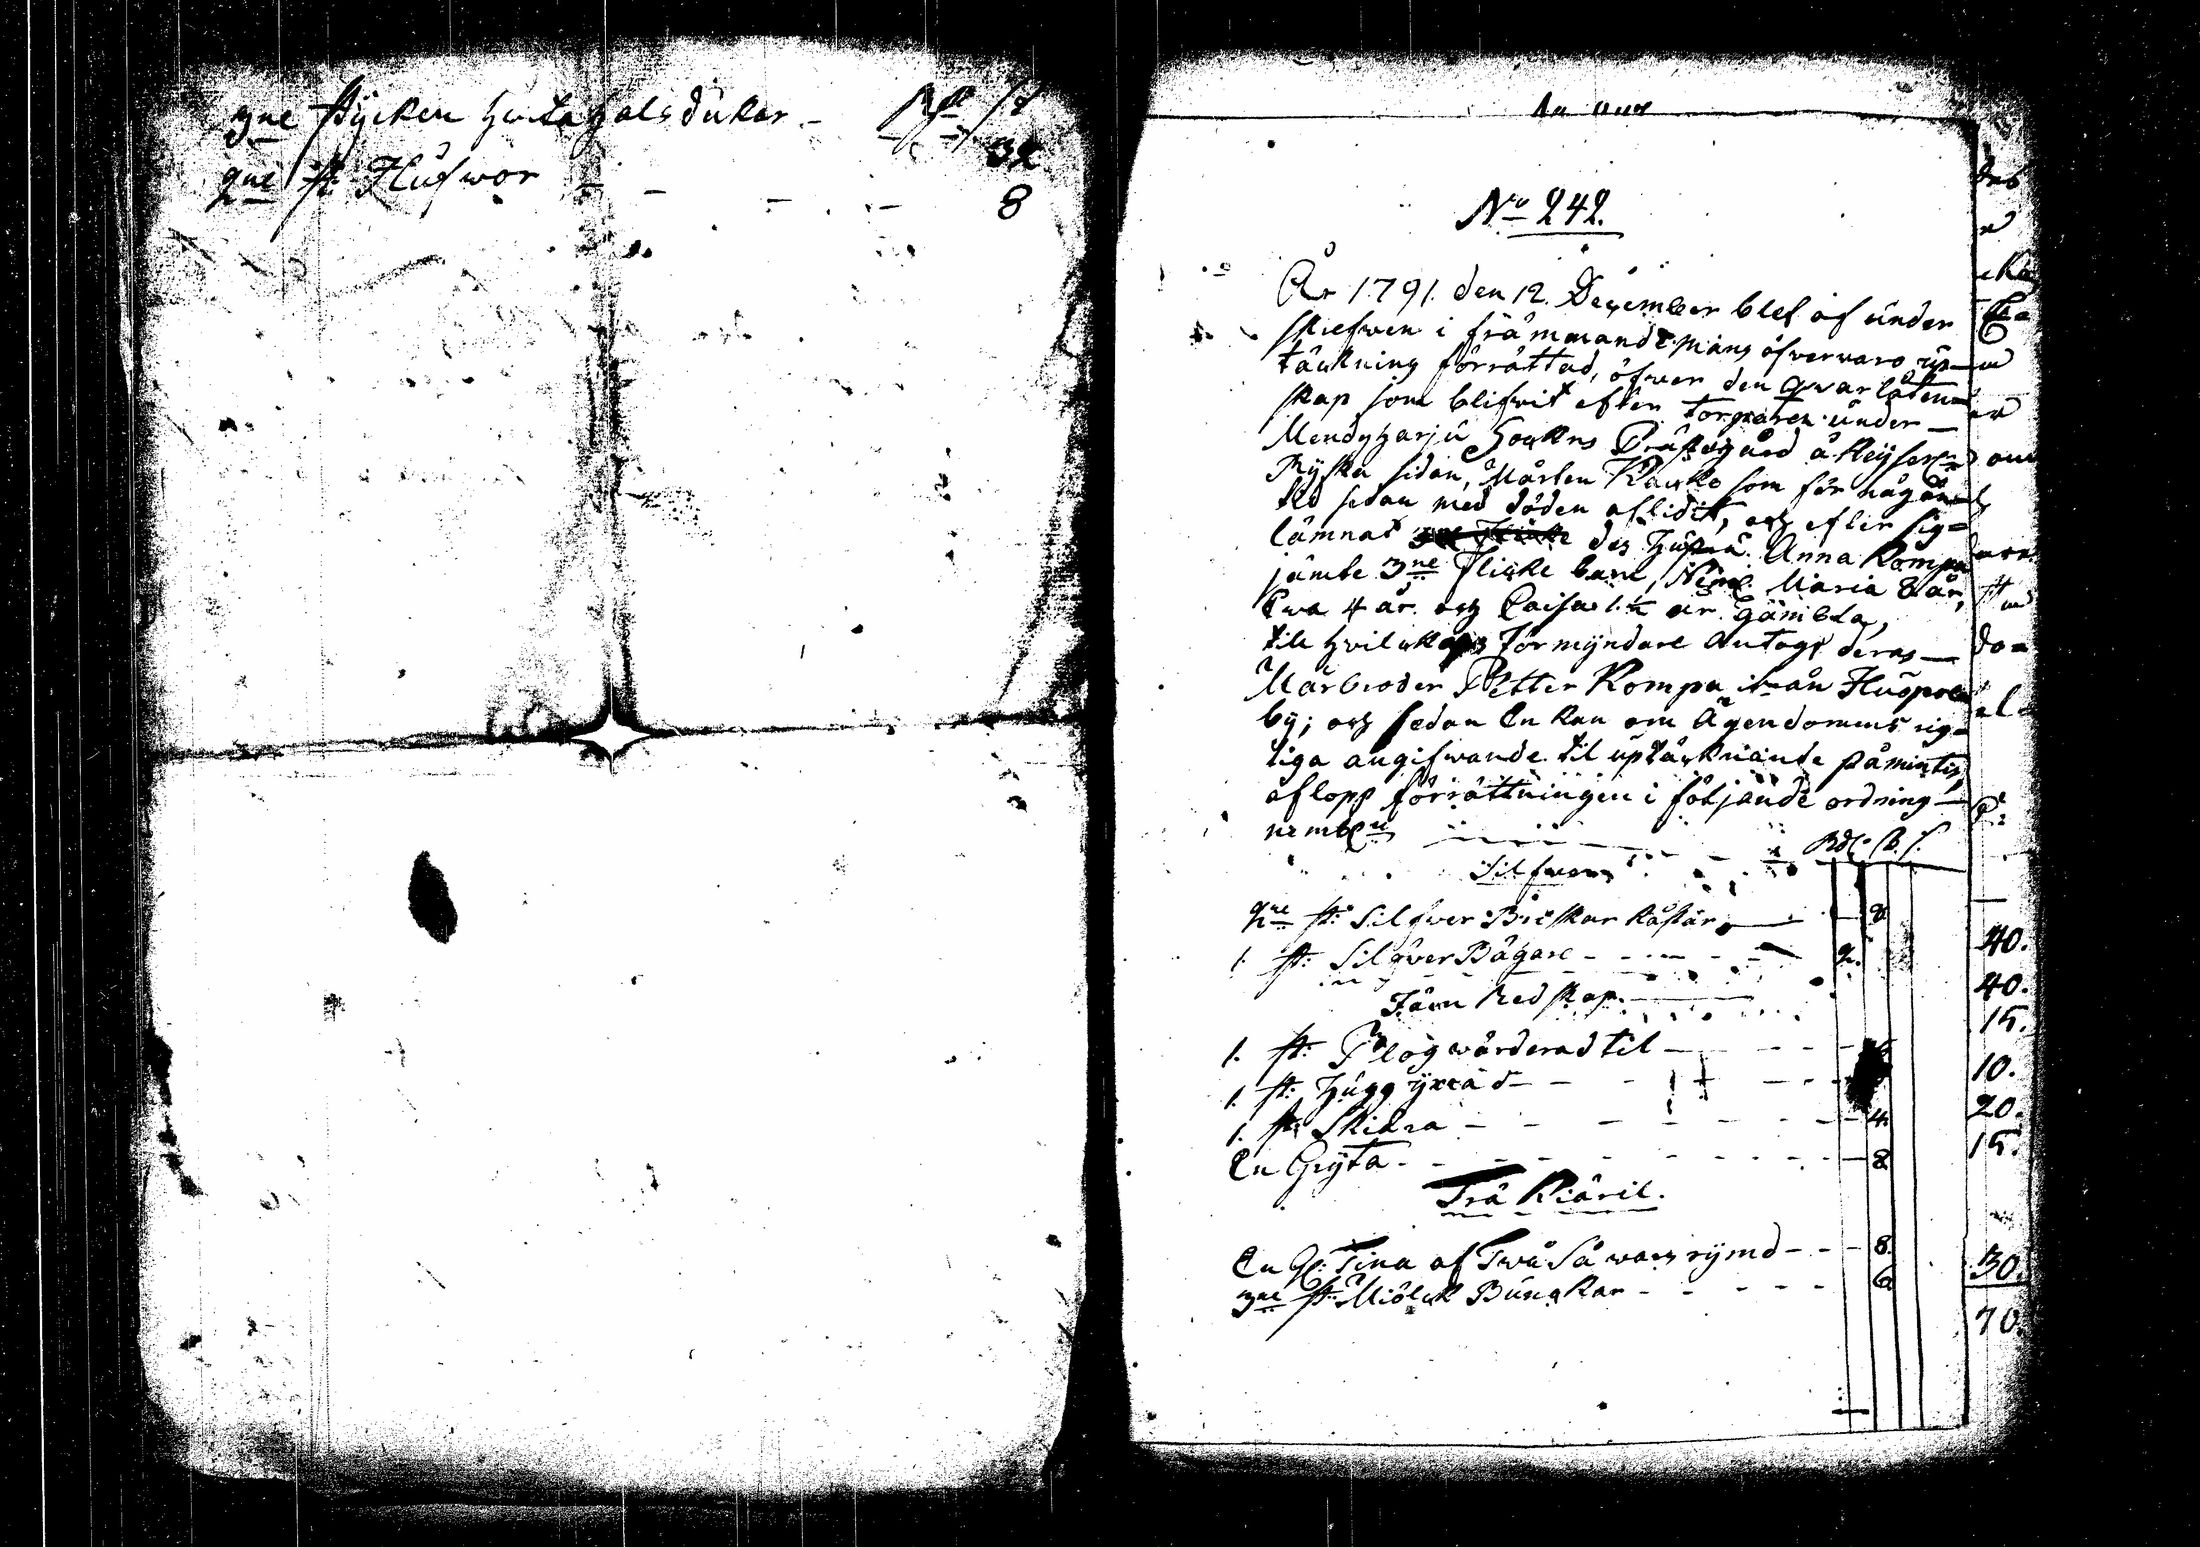 3ne stÿcken hwita halsdukar - Rd s: s
32
2ne st: Hufwor - - - - 8
No 242.
År 1791. den 12. December blef af under
skrefwen i främmande mäns öfwerwaro up-
täckning förrättad, öfwer den qwarlåten-
skap som blifwit efter Torparen under
Mendyharju Sockns Prästegård å Keÿserl:
Rÿska sidan, Mårten Raucko som för någon
tid sedan med döden aflidit, och efter sig
lämnat des hustru Anna Kompa
jämte 3ne Flicke barn, Neml. Maria 8 år,
Ewa 4 år och Caisa 1.½ år gambla,
till hvilckas Förmyndare Antogs deras
Morbroder Petter Kompa ifrån
bÿ; och sedan Enkan om Ägendomens rig-
tiga angifwande til uptäcknande påmintes,
aflopp förrättningen i följande ordning
nembln
Rdr. sk. s.
Silfwer
2ne st: Silfwer Briskor - 8
1. st: Silfver Bägare - - - - 2.
Järn Redskap.
1. st: Plog wärderad til - - - -
1. st: Hugg ÿxa d - - - - -
1. st: Skiära - - - - - - 4.
En Grÿta - - - - - - - 8
Trä Kiäril.
En Gl: Tina af Två Såwars rÿmd - - - 8.
3ne st: Miölck Bunckar - - - - - 6
40.
40.
15.
10.
20.
15.
30.
70.